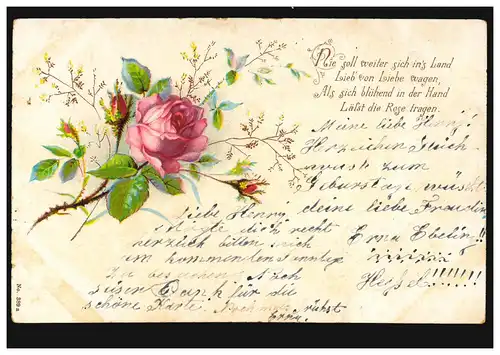 Nie soll weiter sich in's Land
Lieb von Liebe wagen,
Als sich blühend in der Hand
Läßt die Rose tragen.
Meine liebe Henny!
Herzlichen Glück
wunsch zum
Geburtstage wünscht
deine liebe Freundin
Erna Ebeling!!!
Liebe Henny!
dich recht
herzlich bitten mich
im kommenden Sonntag
Zu besuchen
Dank für die
schöne Karte.
Erna
No. 389 a